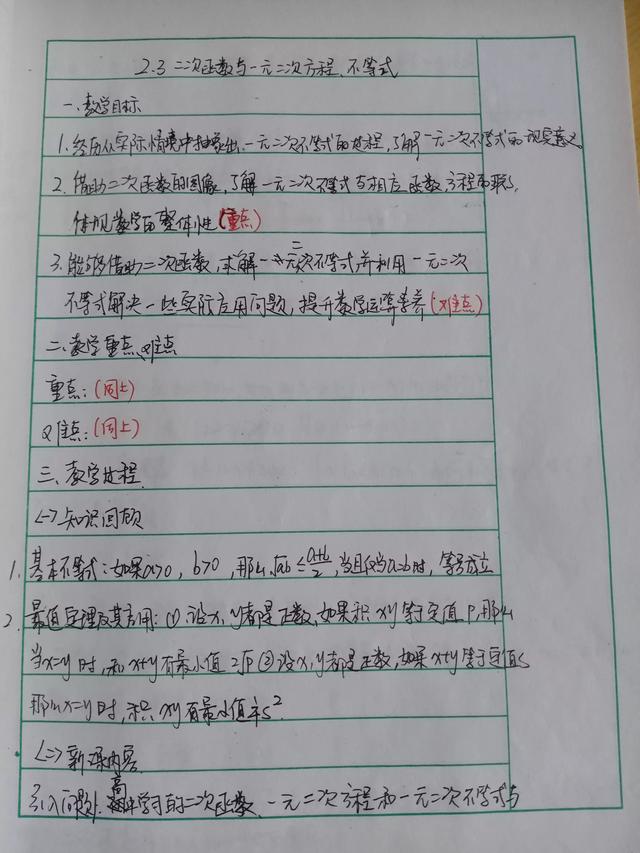 2.3 二次函数与一元二次方程、不等式
一、教学目标
1.经历从实际情境中抽象出一元二次不等式的过程,了解一元二次不等式的现实意义
2.借助二次函数的图象,了解一元二次不等式与相应函数、方程的联系,
体现数学的整体性(重点)
3.能够借助二次函数,求解一元二次不等式,并利用一元二次
不等式解决一些实际应用问题,提升数学运算素养(难点)
二、教学重点、难点
重点:(同上)
难点:(同上)
三、教学过程
(一)知识回顾
1.基本不等式:如果a>0,b>0,那么√ab≤(a+b)/2,当且仅当a=b时,等号成立
2.最值定理及其应用:①设x,y都是正数,如果积xy等于定值P,那么
当x=y时,和x+y有最小值2√P②设x,y都是正数,如果x+y等于定值S
那么x=y时,积xy有最小值¼S²
(二)新课内容
引入问题:高中学习的二次函数、一元二次方程和一元二次不等式与